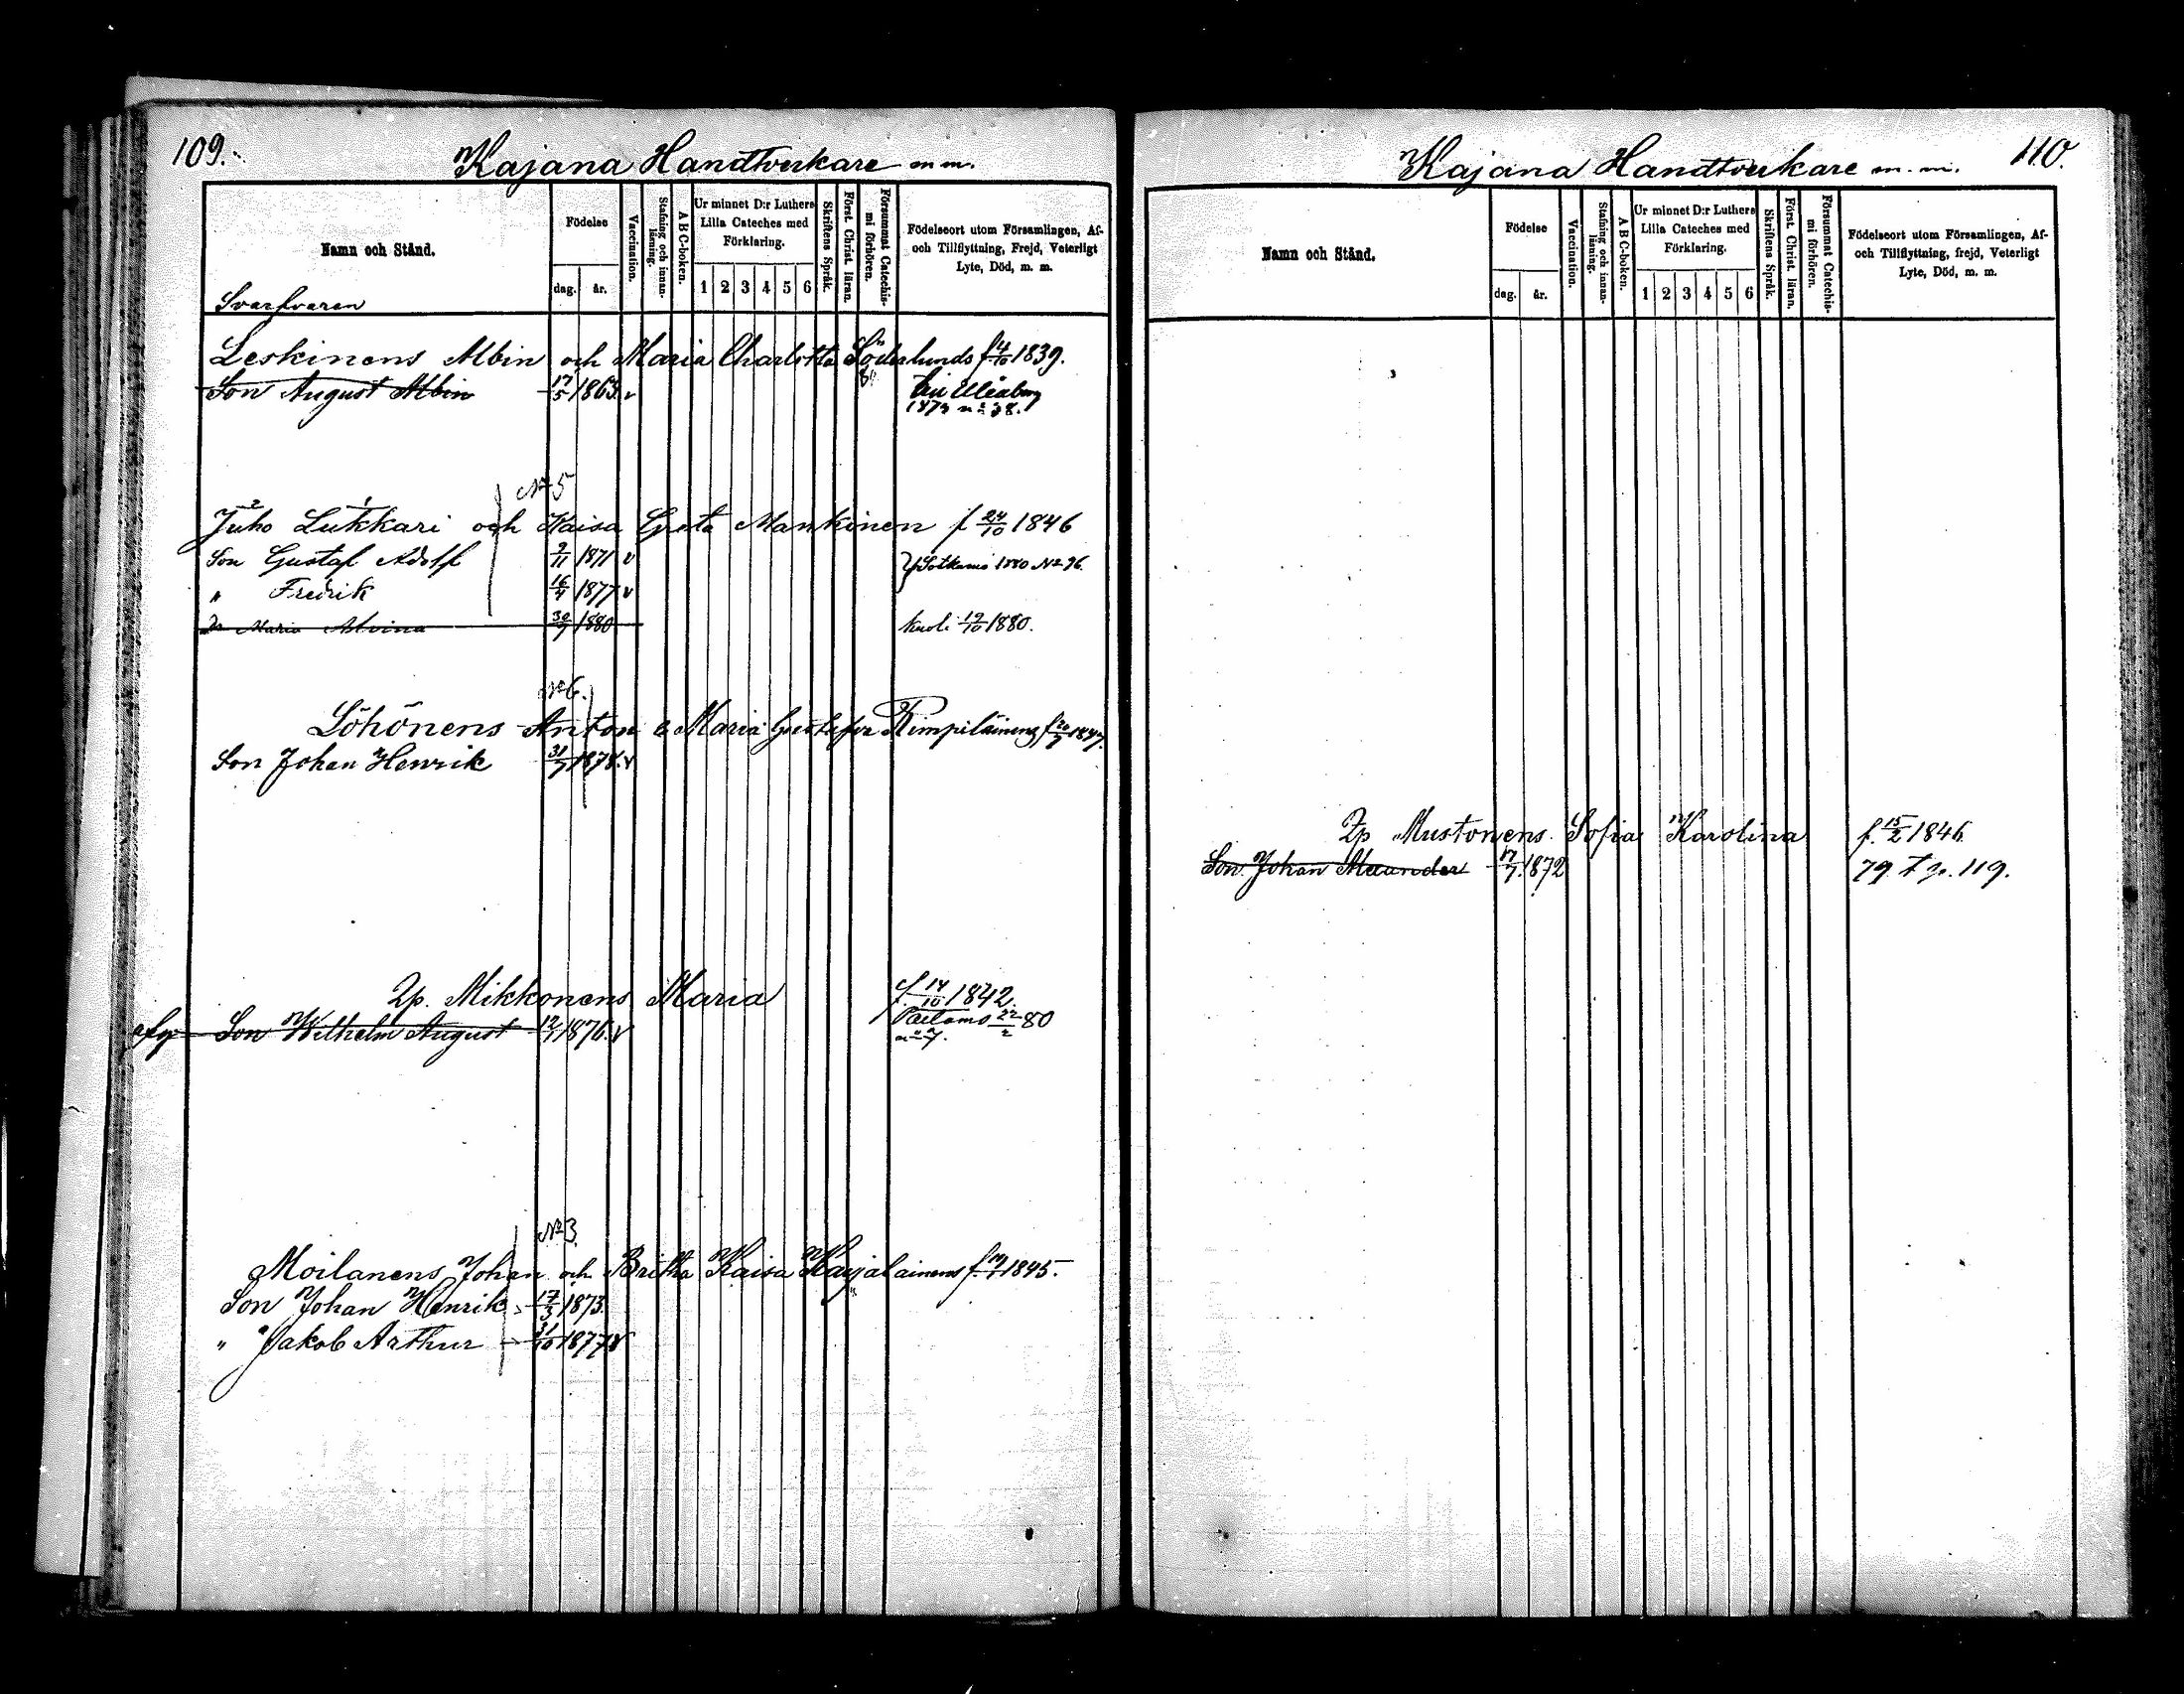 109.
Kajana Handtverkare m m.
Namn och Stånd.
Födelse
dag. år.
Vaccination.
Stafning och innanläsning.
A B C-boken.
Ur minnet D:r Luthers Lilla Cateches med Förklaring.
1 2 3 4 5 6
Skriftens Språk.
Först. Christ. läran.
Försummat Catechismi förhören.
Födelseort utom Församlingen, Af- och Tillflyttning, Frejd, Veterligt Lyte, Död, m. m.
Svarfvaren
Leskinens Albin och Maria Charlotta Söderlunds f 4/10 1839.
Son August Albin 17/5 1863 v Uleåborg
1873 nº 38.
Nº 5
Juho Lukkari och Kaisa Greta Mankinen f 24/10 1846
Son Gustaf Adolf 9/11 1871 v Sotkamo 1880 Nº 96.
" Fredrik 16/4 1877 v
Maria Alvina 30/7 1880 kuoli 19/10 1880.
Nº 6.
Löhönens Anton o Maria Gustafva Kimpiläinens f 20/7 1847.
Son Johan Henrik 31/7 1878. v
2p. Mikkonens Maria f. 14/10 1842.
Son Wilhelm August 12/1 1876. v Paltamo 22/2 80
nº 7.
Nº 3
Moilanens Johan och Britha Kaisa Karjalainens f. 1845.
Son Johan Henrik 17/3 1873.
" Jakob Arthur 31/10 1877 v
Kajana Handtverkare m. m.
110.
Namn och Stånd.
Födelse
dag. år.
Vaccination.
Stafning och innanläsning.
A B C-boken.
Ur minnet D:r Luthers Lilla Cateches med Förklaring.
1 2 3 4 5 6
Skriftens Språk.
Först. Christ. läran.
Försummat Catechismi förhören.
Födelseort utom Församlingen, Af- och Tillflyttning, frejd, Veterligt Lyte, Död, m. m.
2p Mustonens Sofia Karolina f. 15/2 1846
Son Johan 17/7 1872 79 t p. 119.